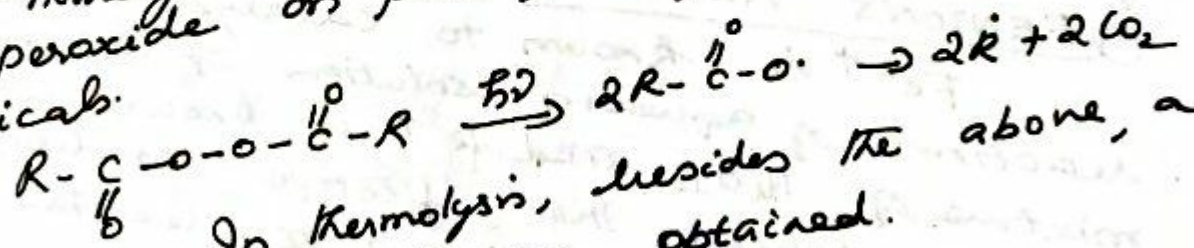 peroxide on
icals.
R-C(=O)-O-O-C(=O)-R →(hν) 2R-C(=O)-O· → 2Ṙ + 2CO₂
In thermolysis, besides the above, a
obtained.